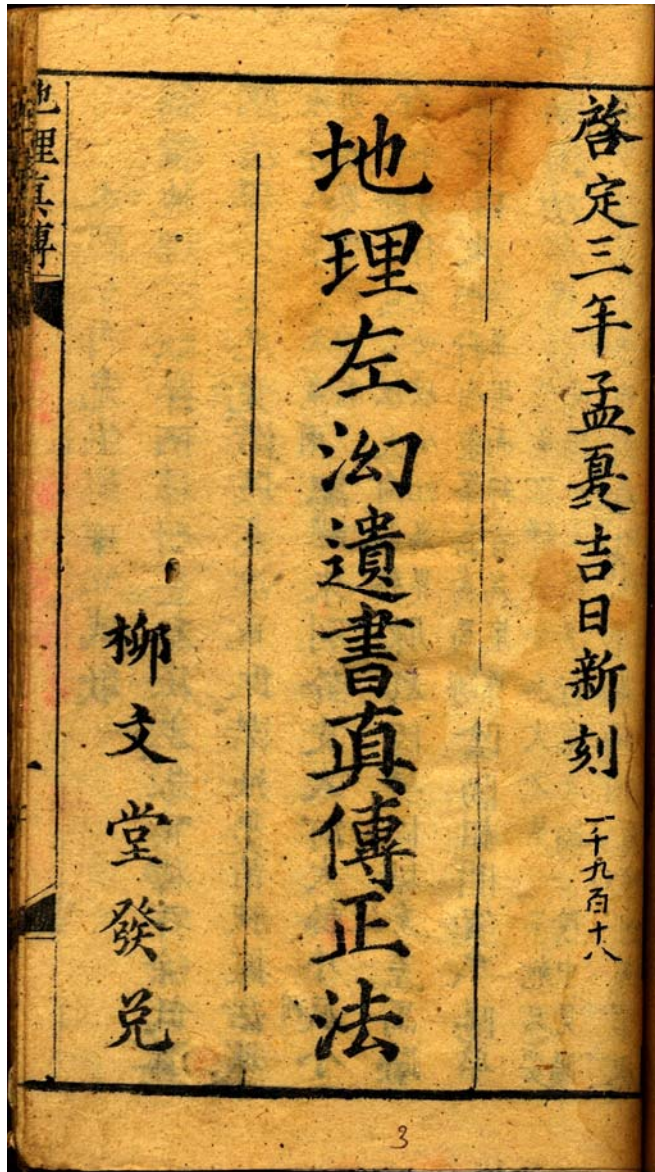 啓定三年孟夏吉日新刻
一千九百十八
地理左㳓遺書真傳正法
柳文堂發兌
地理真傳
一
3